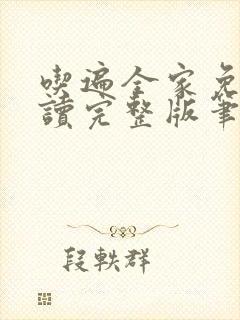 喫遍全家免
讀完整版筆
段軼群